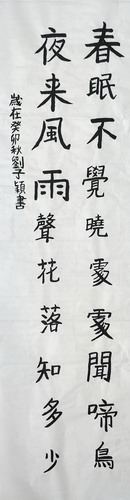 春眠不覺曉處處聞啼鳥
夜来風雨聲花落知多少
歲在癸卯秋劉子穎書